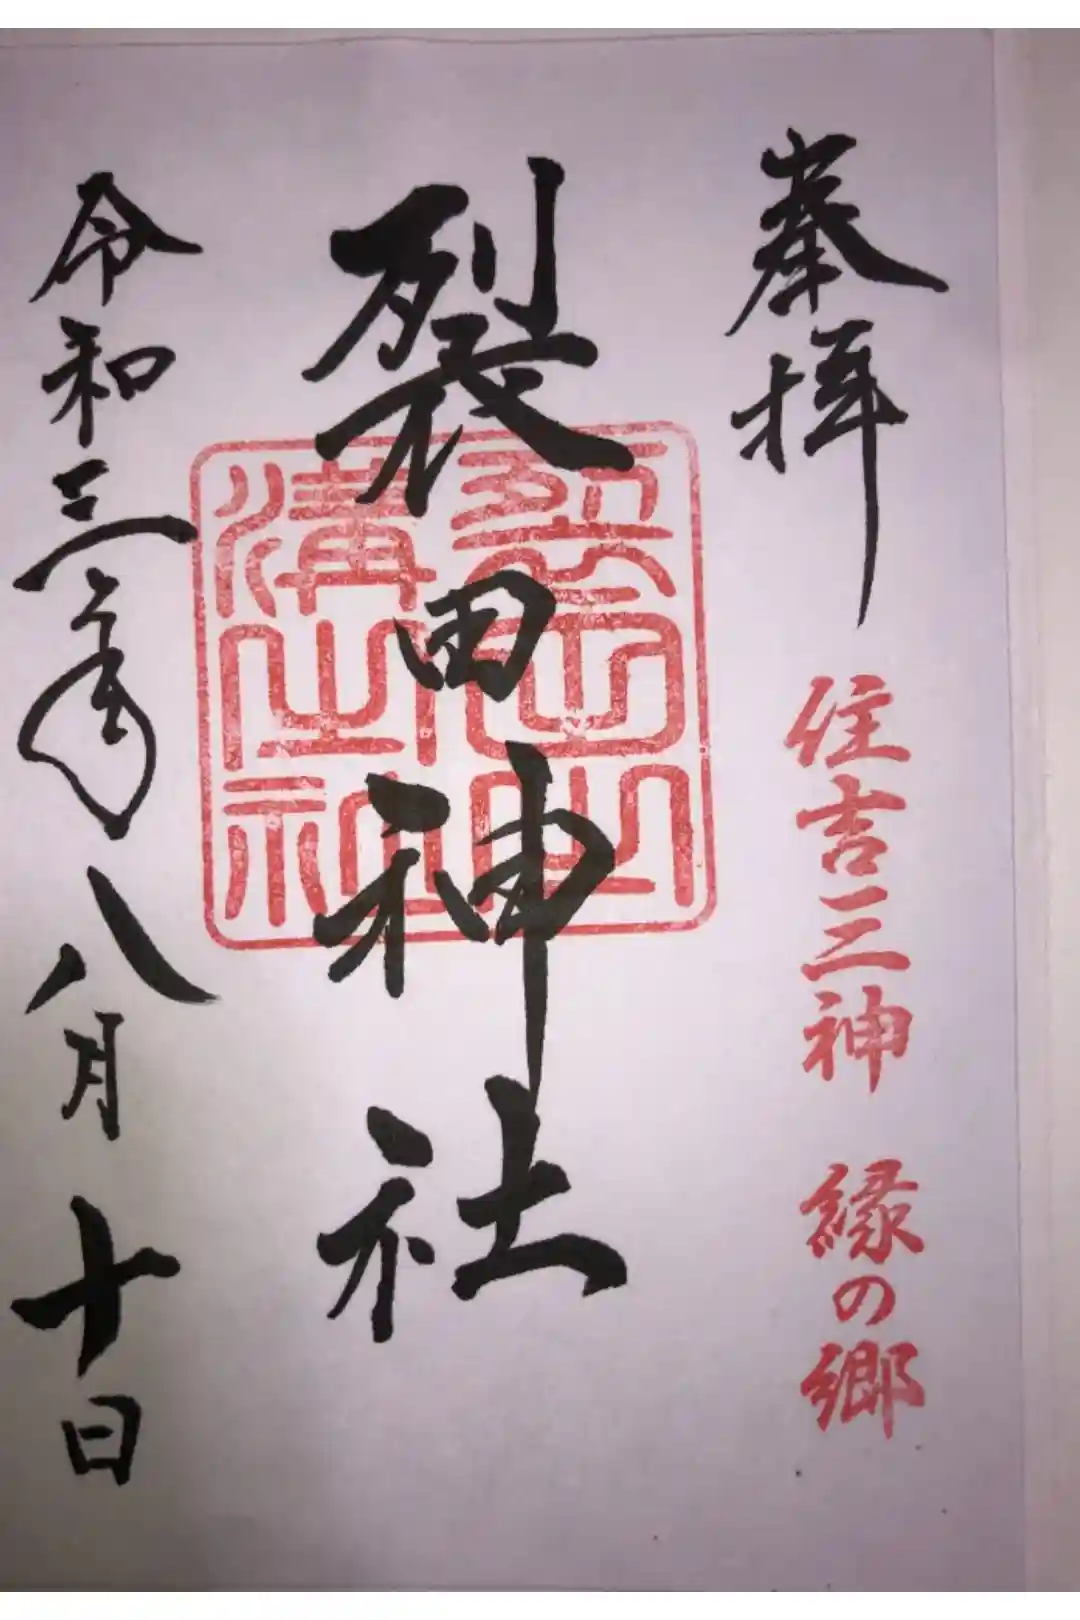 奉拝
住吉三神 縁の郷
裂田神社
令和三年八月十日